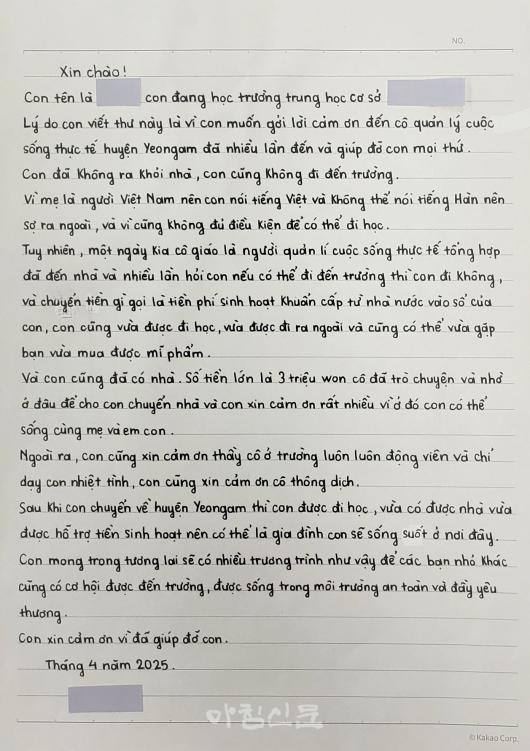 NO.
Xin chào!
Con tên là con đang học trường trung học cơ sở
Lý do con viết thư này là vì con muốn gởi lời cảm ơn đến cô quản lý cuộc
sống thực tế huyện Yeongam đã nhiều lần đến và giúp đỡ con mọi thứ.
Con đã không ra khỏi nhà, con cũng không đi đến trường.
Vì mẹ là người Việt Nam nên con nói tiếng Việt và không thể nói tiếng Hàn nên
sợ ra ngoài, và vì cũng không đủ điều kiện để có thể đi học.
Tuy nhiên, một ngày kia cô giáo là người quản lí cuộc sống thực tế tổng hợp
đã đến nhà và nhiều lần hỏi con nếu có thể đi đến trường thì con đi không,
và chuyển tiền gì gọi là tiền phí sinh hoạt khuẩn cấp từ nhà nước vào sổ của
con, con cũng vừa được đi học, vừa được đi ra ngoài và cũng có thể vừa gặp
bạn vừa mua được mĩ phẩm.
Và con cũng đã có nhà. Số tiền lớn là 3 triệu won cô đã trò chuyện và nhờ
ở đâu để cho con chuyển nhà và con xin cảm ơn rất nhiều vì ở đó con có thể
sống cùng mẹ và em con.
Ngoài ra, con cũng xin cảm ơn thầy cô ở trường luôn luôn động viên và chỉ
dạy con nhiệt tình, con cũng xin cảm ơn cô thông dịch.
Sau khi con chuyển về huyện Yeongam thì con được đi học, vừa có được nhà vừa
được hỗ trợ tiền sinh hoạt nên có thể là gia đình con sẽ sống suốt ở nơi đây.
Con mong trong tương lai sẽ có nhiều trương trình như vậy để các bạn nhỏ khác
cũng có cơ hội được đến trường, được sống trong môi trường an toàn và đầy yêu
thương.
Con xin cảm ơn vì đã giúp đỡ con.
Tháng 4 năm 2025.
아침신문
© Kakao Corp.